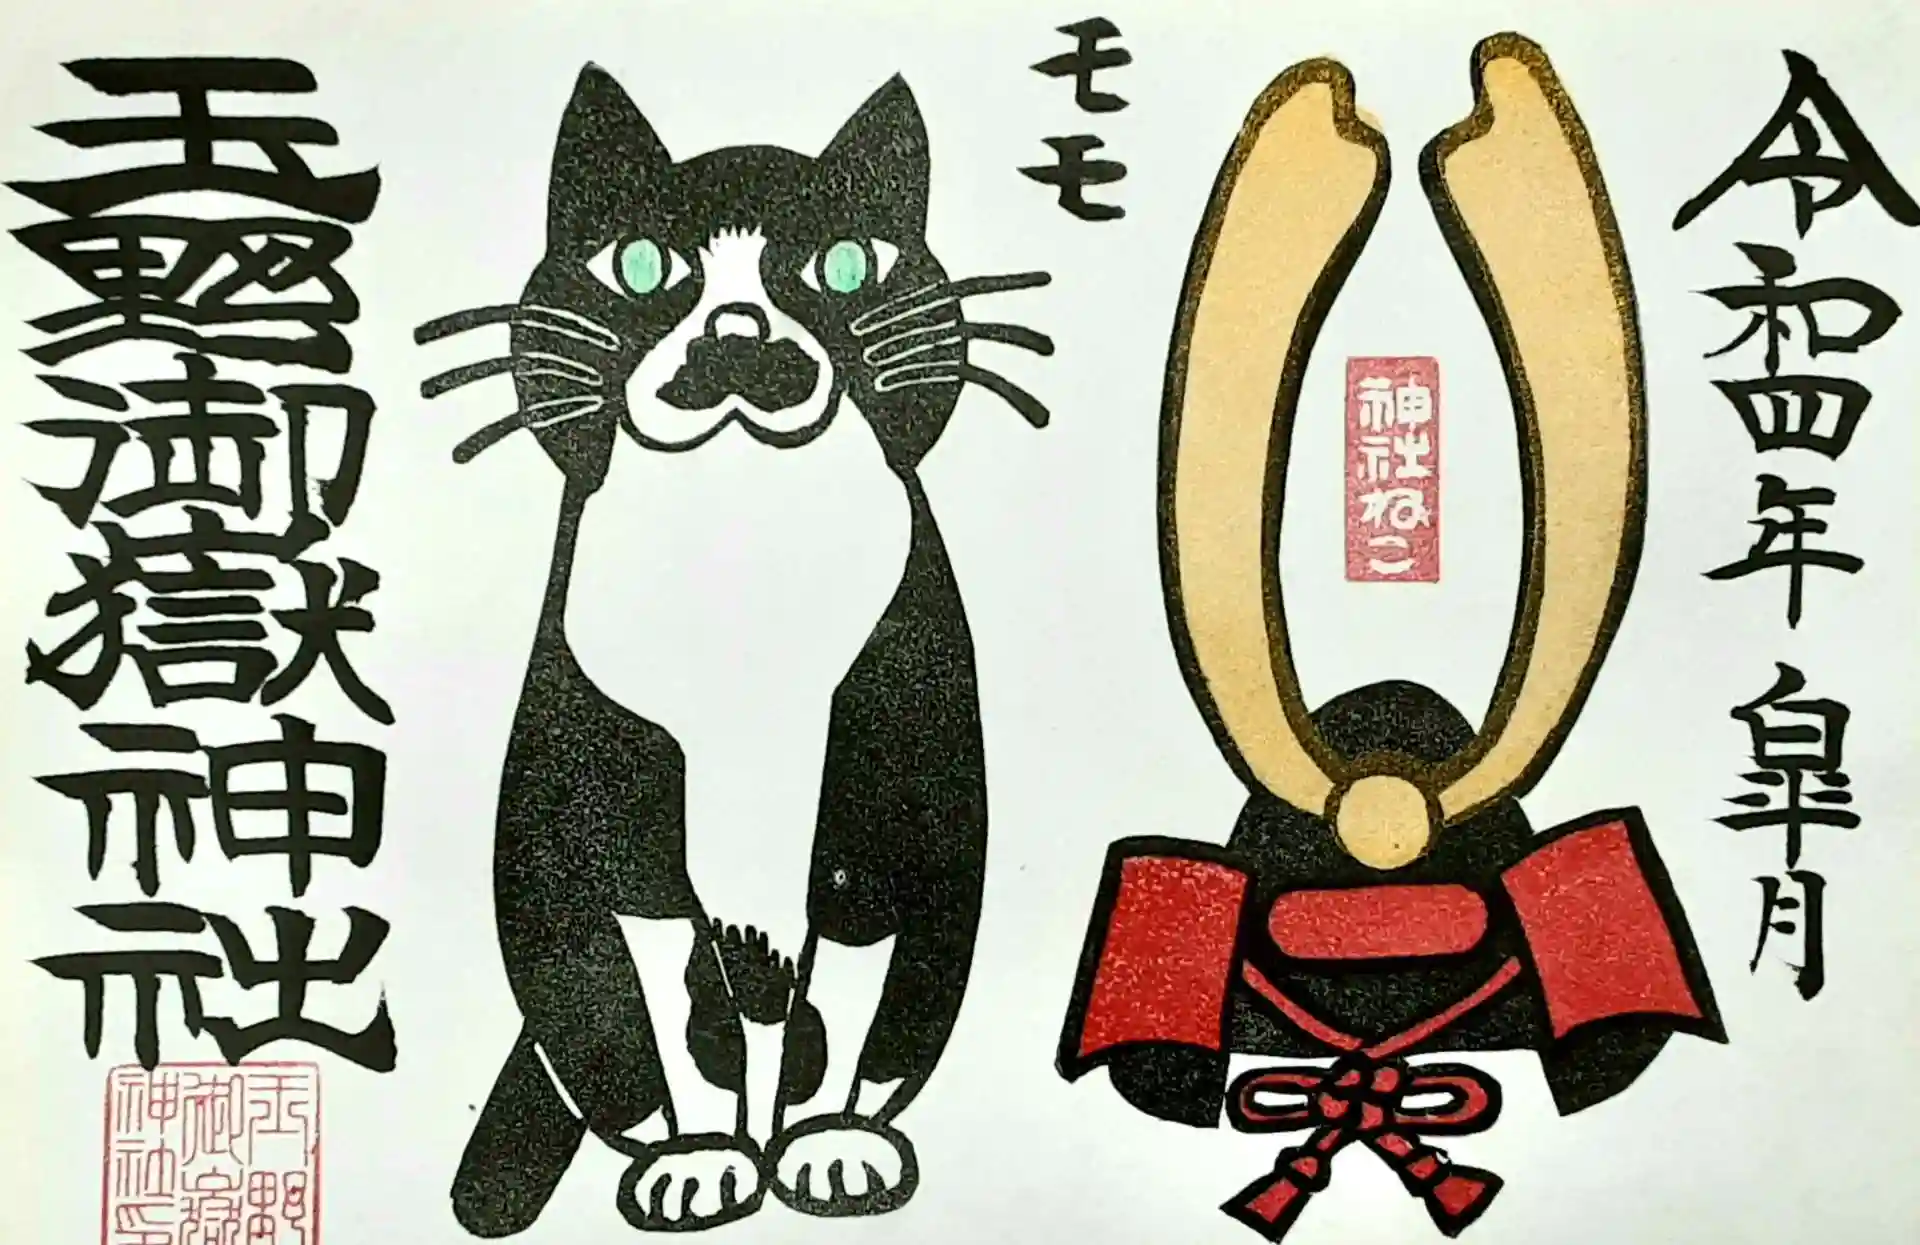 令和四年 皐月
神社ねこ
モモ
玉野御嶽神社
玉野
御嶽
神社印